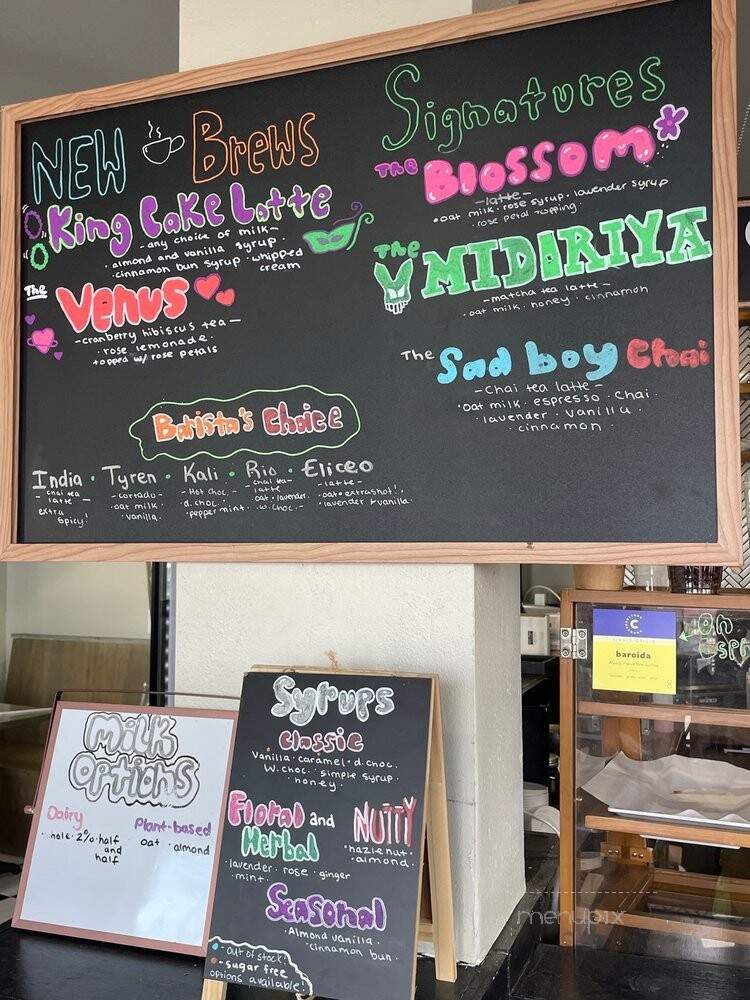 NEW Brews
King Cake Latte
- any choice of milk -
· almond and vanilla syrup ·
· cinnamon bun syrup · whipped
cream
The
Venus
- cranberry hibiscus tea -
· rose lemonade ·
topped w/ rose petals
Signatures
The Blossom
- latte -
· oat milk · rose syrup · lavender syrup
· rose petal topping ·
The
MIDORIYA
- matcha tea latte -
· oat milk · honey · cinnamon
The Sad boy Chai
- chai tea latte -
· oat milk · espresso · chai ·
· lavender · vanilla ·
· cinnamon ·
Barista's Choice
India · Tyren · Kali · Rio · Eliceo
- chai tea
latte -
extra
spicy!
- cortado -
· oat milk ·
· vanilla ·
- Hot choc. -
· d. choc. ·
· peppermint ·
- chai tea
latte -
oat · lavender ·
· w. choc. ·
- latte -
· oat · extra shot! ·
· lavender + vanilla ·
Milk
options
Dairy
whole · 2% · half
and
half
Plant-based
oat · almond
Syrups
Classic
Vanilla · caramel · d. choc.
W. choc. · simple syrup ·
· honey ·
Floral and
Herbal
· lavender · rose · ginger
· mint ·
NUTTY
· hazlenut ·
· almond ·
Seasonal
· Almond vanilla ·
· cinnamon bun ·
· - out of stock!
· - sugar free
options available!
C
baroida
on
menupix